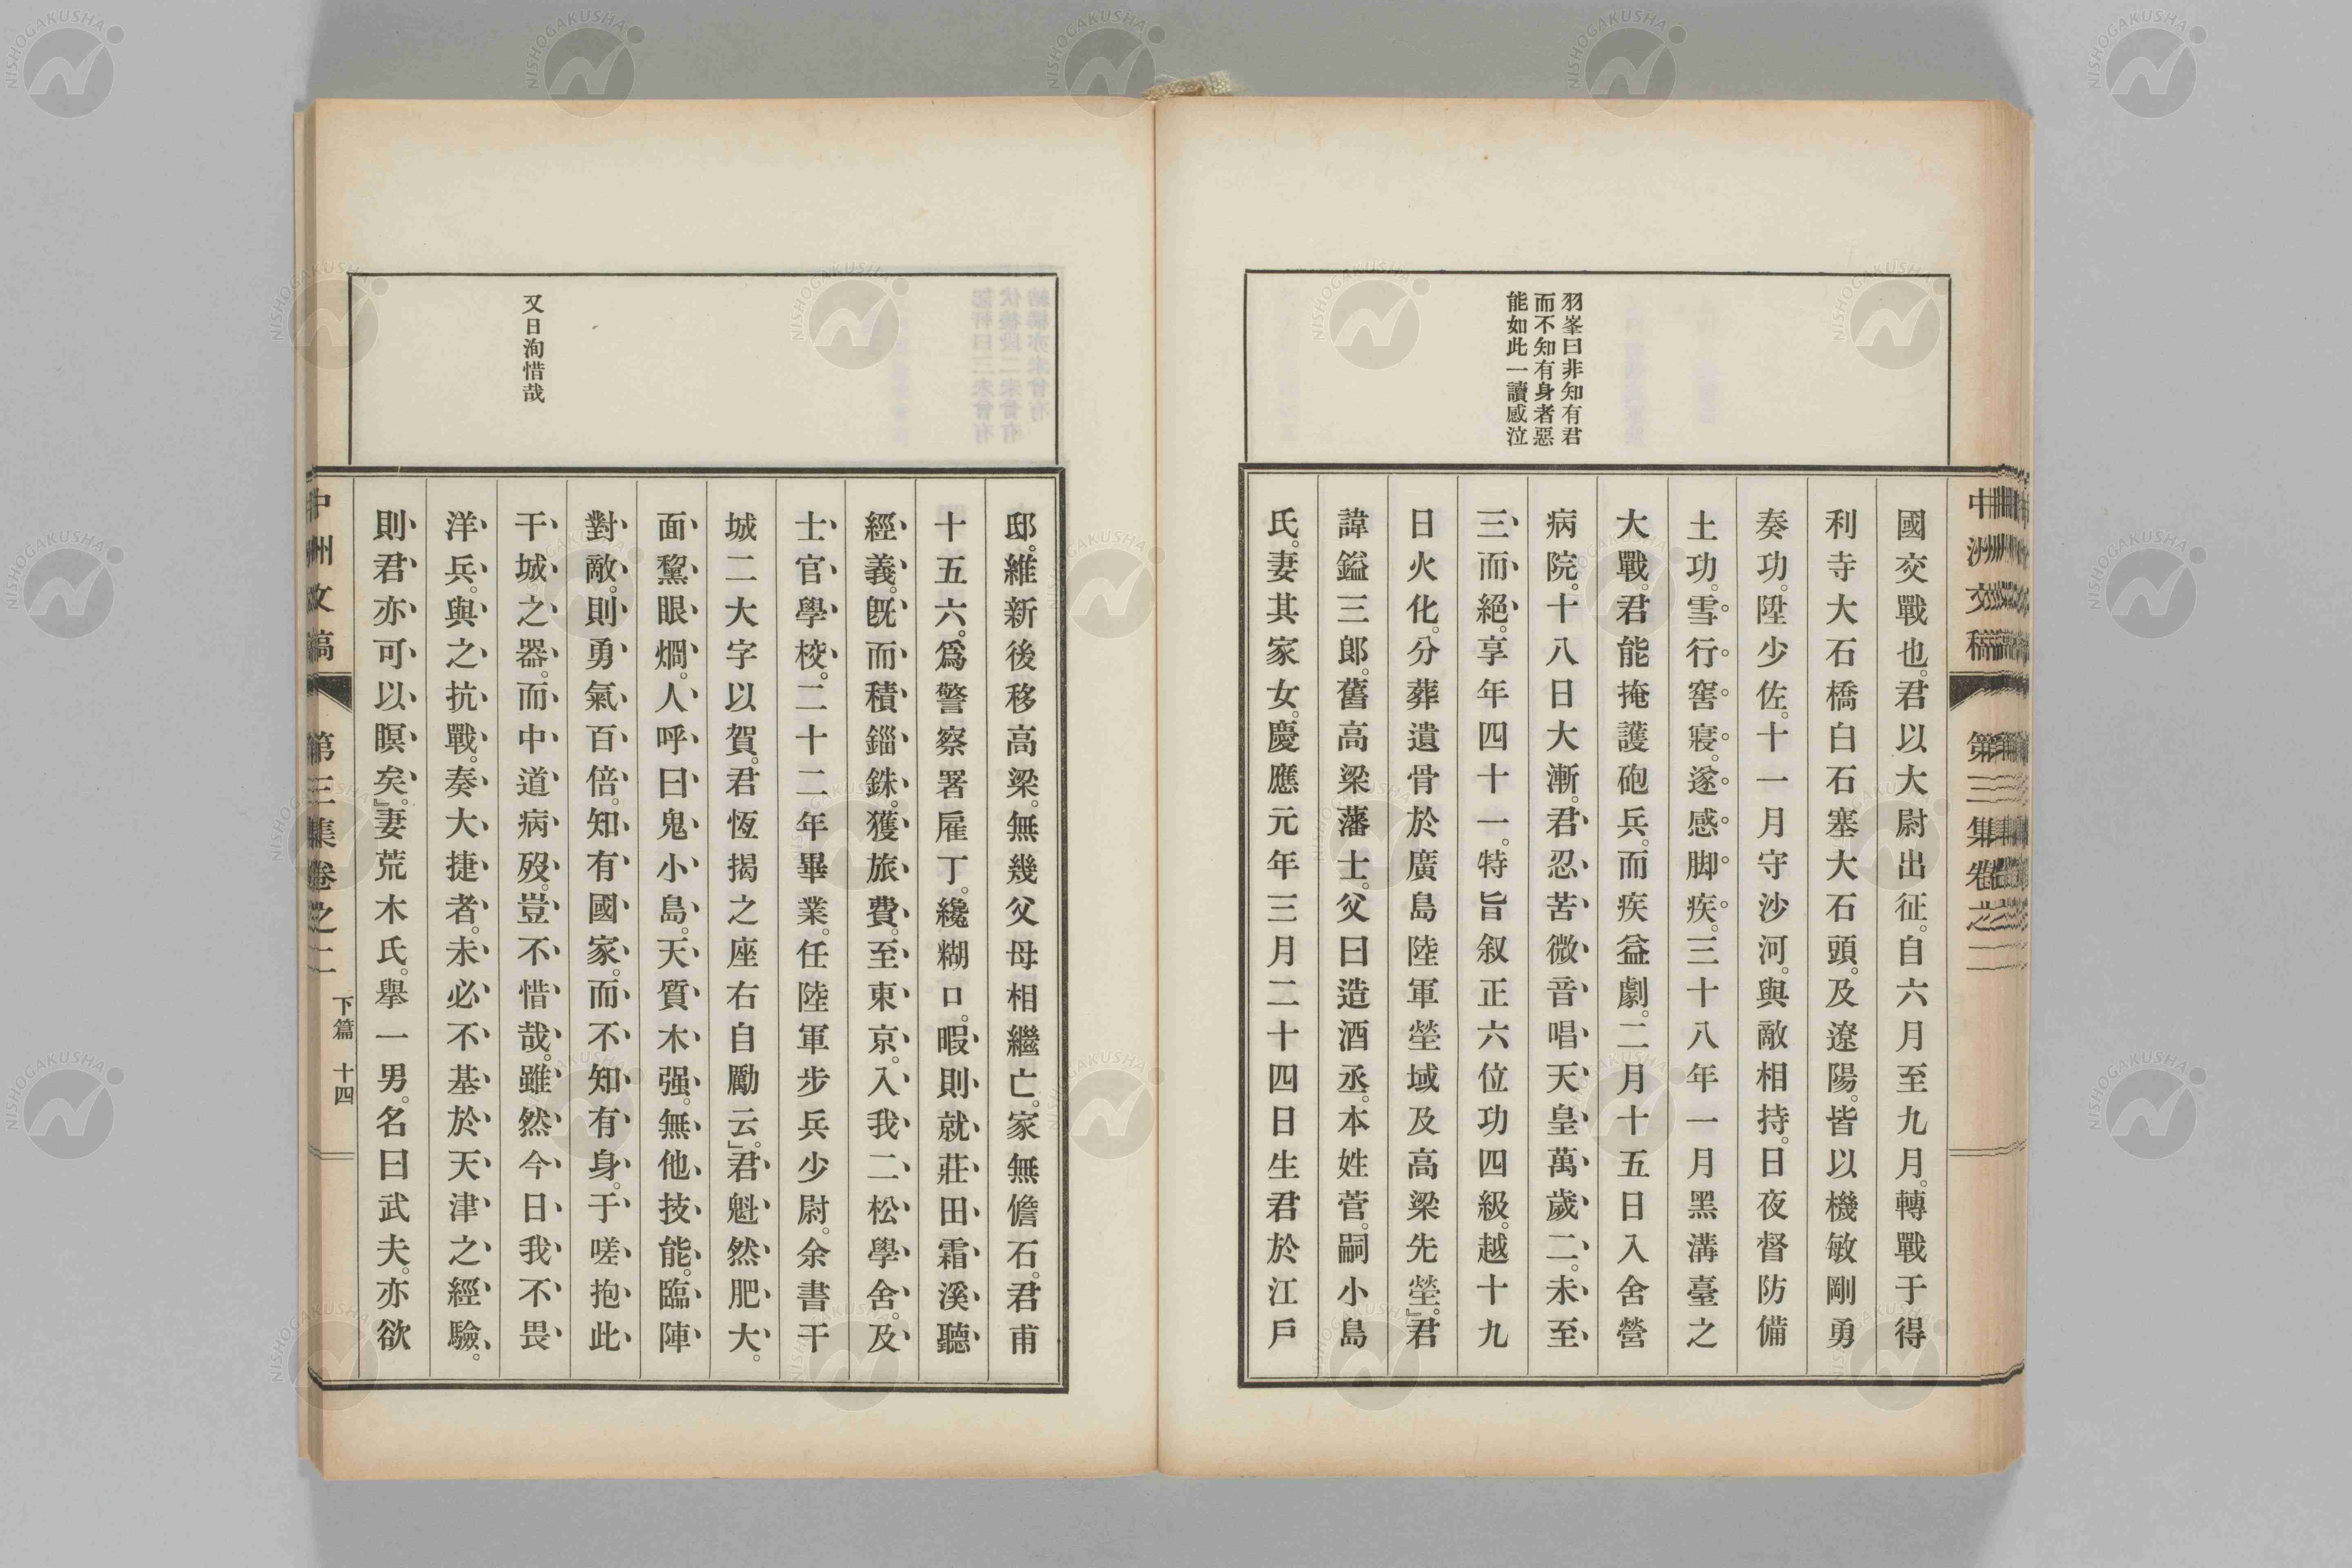 中洲文稿 第三集卷之二
羽峯曰非知有君
而不知有身者惡
能如此一讀感泣
國交戰也。君以大尉出征。自六月至九月。轉戰于得
利寺大石橋白石塞大石頭。及遼陽。皆以機敏剛勇
奏功。陞少佐。十一月守沙河。與敵相持。日夜督防備
土功。雪行窖寢。遂感脚疾。三十八年一月黑溝臺之
大戰。君能掩護砲兵。而疾益劇。二月十五日入舍營
病院。十八日大漸。君忍苦微音唱天皇萬歲二。未至
三而絕。享年四十一。特旨叙正六位功四級。越十九
日火化。分葬遺骨於廣島陸軍塋域及高梁先塋。』君
諱鎰三郎。舊高梁藩士。父曰造酒丞。本姓菅。嗣小島
氏。妻其家女。慶應元年三月二十四日生君於江戶
又曰洵惜哉
邸。維新後移高梁。無幾父母相繼亡。家無儋石。君甫
十五六。爲警察署雇丁。纔糊口。暇則就莊田霜溪聽
經義。旣而積錙銖。獲旅費。至東京。入我二松學舍。及
士官學校。二十二年畢業。任陸軍步兵少尉。余書干
城二大字以賀。君恆揭之座右自勵云。』君魁然肥大。
面黧眼烱。人呼曰鬼小島。天質木强。無他技能。臨陣
對敵。則勇氣百倍。知有國家。而不知有身。于嗟抱此
干城之器。而中道病歿。豈不惜哉。雖然今日我不畏
洋兵。與之抗戰。奏大捷者。未必不基於天津之經驗。
則君亦可以瞑矣。』妻荒木氏。擧一男。名曰武夫。亦欲
中洲文稿 第三集卷之二 下篇 十四